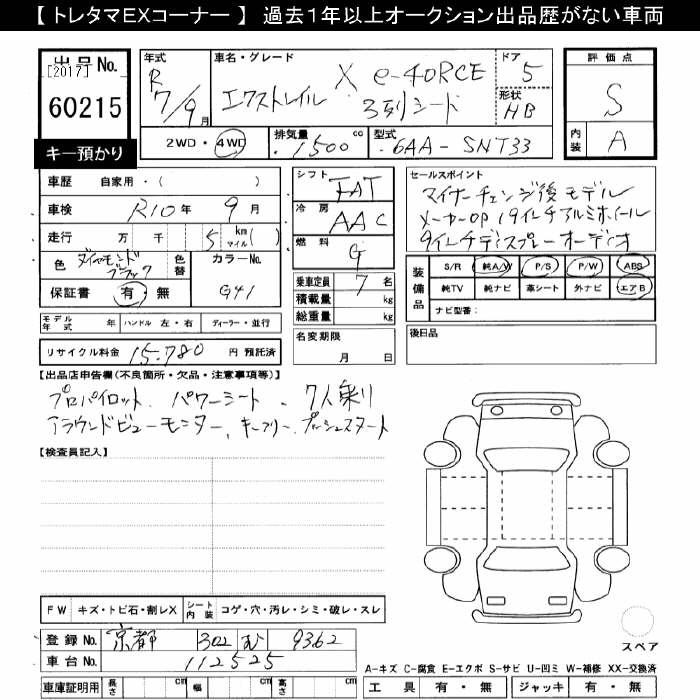 【 トレタマEXコーナー 】 過去1年以上オークション出品歴がない車両
出品No.
[2017]
60215
キー預かり
年式 R 7/9月
車名・グレード エクストレイル X e-4ORCE 3列シード
ドア 5
形状 HB
2WD・4WD
排気量 1500 cc
型式 6AA-SNT33
評価点 S
内装 A
車歴 自家用・( )
車検 R10年 9月
走行 万 千 5 km マイル ( )
色 ダイヤモンドブラック 色替
カラーNo. G41
保証書 有・無
モデル年式 年 ハンドル 左・右 ディーラー・並行
リサイクル料金 15.780 円 預託済
シフト FAT
冷房 AAC
燃料 G
乗車定員 7名
積載量 kg
総重量 kg
名変期限 月 日
セールスポイント
マイナーチェンジ後モデル
メーカーOP 19インチアルミホイール
9インチディスプレーオーディオ
装備品 S/R 純A/W P/S P/W ABS
純TV 純ナビ 革シート 外ナビ エアB
ナビ型番:
後日品
【出品店申告欄(不良箇所・欠品・注意事項等)】
プロパイロット. パワーシート. 7人乗り
アラウンドビューモニター, キーフリー. プッシュスタート
【検査員記入】
FW キズ・トビ石・割レX シート内装 コゲ・穴・汚レ・シミ・破レ・スレ
登録No. 京都 302 む 9362
車台No. 112525
車庫証明用 長さ cm 幅 cm 高さ cm
スペア
A-キズ C-腐食 E-エクボ S-サビ U-凹ミ W-補修 XX-交換済
工具 有・無 ジャッキ 有・無